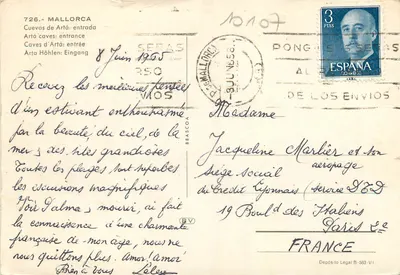 726.- MALLORCA
Cuevas de Artá: entrada
Artá caves: entrance
Caves d'Artá: entrée
Arta Höhlen: Eingang
8 Juin 1955
Recevez les meilleures pensées
d'un estivant enthousiasmé
par la beauté, du ciel, de la
mer, des sites grandioses
Toutes les plages sont superbes
les excursions magnifiques
"Voir Palma, mourir, ai fait
la connaissance d'une charmante
française de mon âge, nous ne
nous quittons plus. Amor! Amor!
Bien à vous
BEASCOA
10107
MALLORCA
PONG
DE LOS ENVIOS
3
PTAS
ESPAÑA
Madame
Jacqueline Marlier et son
aeropage
Siège social
du Crédit Lyonnais (Service DTD
19 Bould des Italiens
Paris 2e
FRANCE